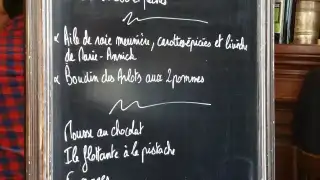 α Aile de raie meunière, carottes épicées et livèche
de Marie-Annick
α Boudin des Arlots aux 2 pommes
Mousse au chocolat
Ile flottante à la pistache